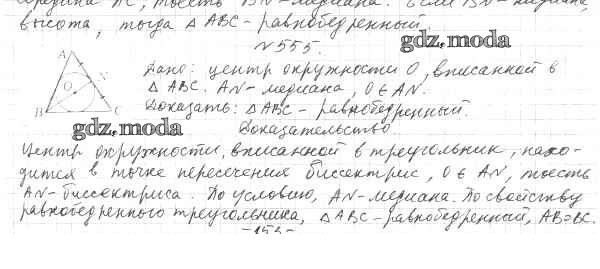 середина AC, тоесть BN-медиана. Если BN-медиана,
высота, тогда △ABC-равнобедренный.
№555.
gdz.moda
A
Дано: центр окружности O, вписанной в
△ABC. AN-медиана, O∈AN.
N
O
Доказать: △ABC-равнобедренный.
B
C
gdz.moda
Доказательство
Центр окружности, вписанной в треугольник, нахо-
дится в точке пересечения биссектрис, O∈AN, тоесть
AN-биссектриса. По условию, AN-медиана. По свойству
равнобедренного треугольника, △ABC-равнобедренный, AB=BC.
-152-